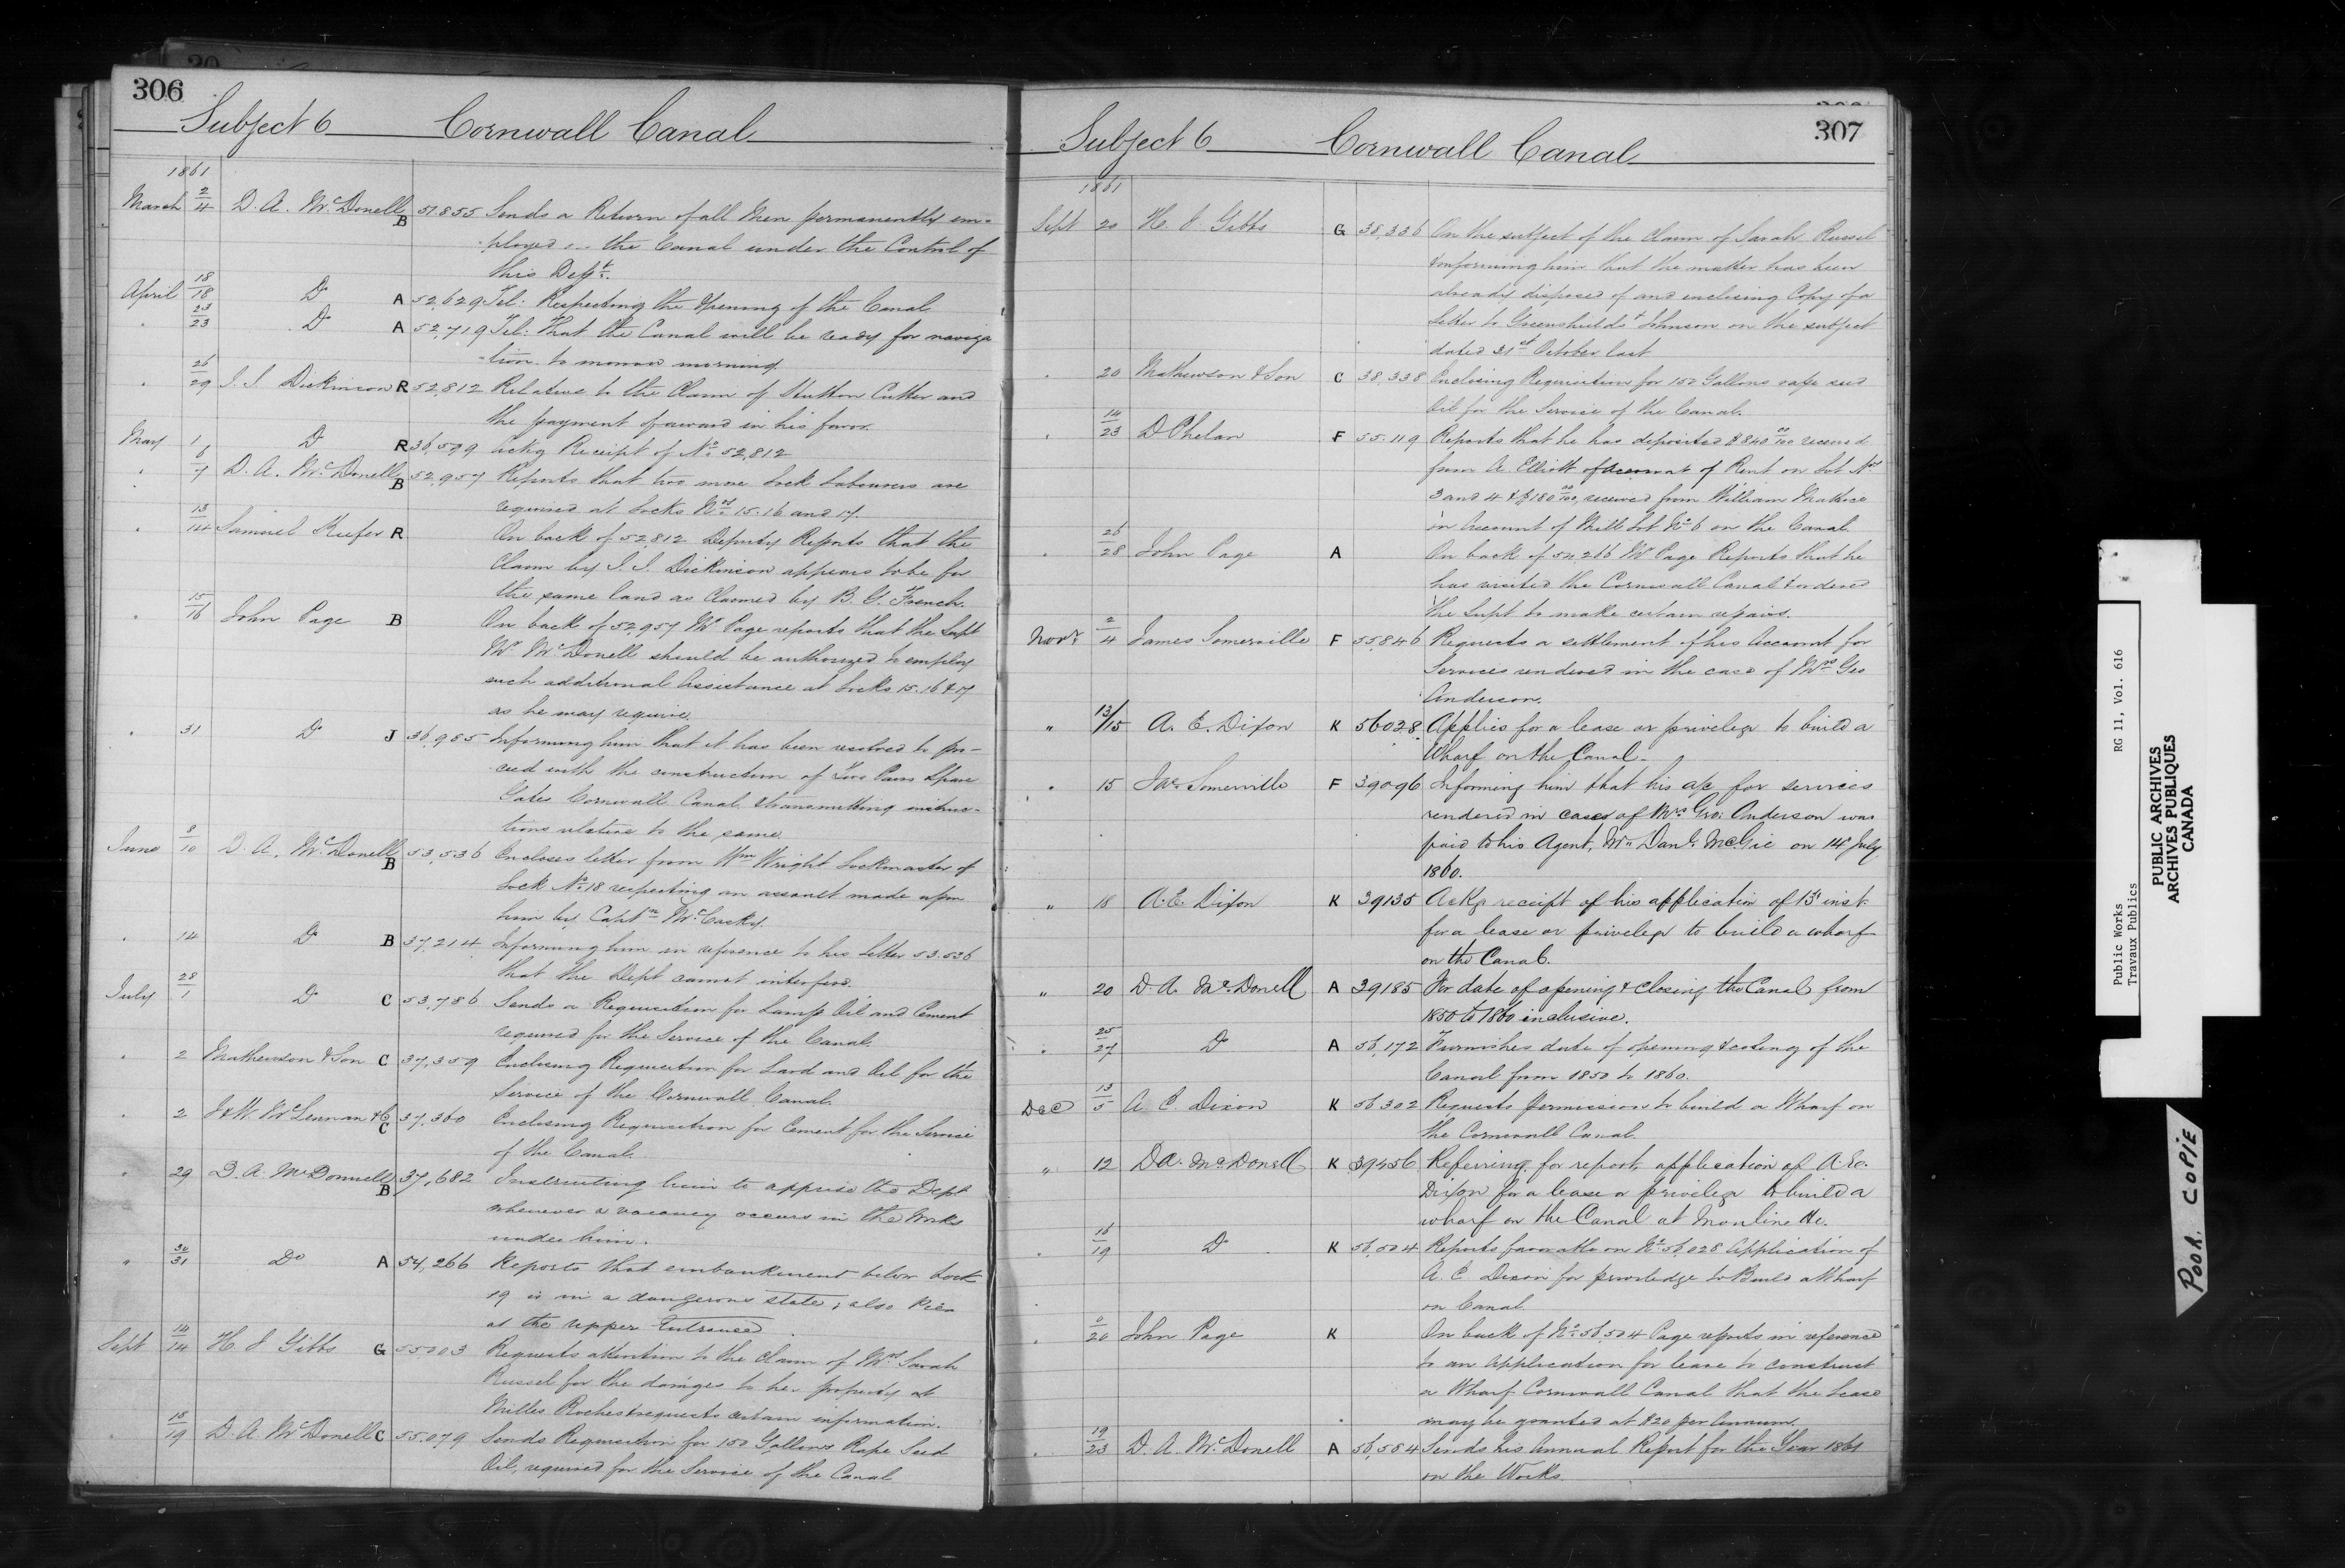 306
Subject 6 Cornwall Canal
1861
March 2/4 D. A. McDonell B 51.855 Sends a Return of all Men permanently em-
ployed on the Canal under the Control of
this Dept.
April 18/18 Do A 52,629 Tel: Respecting the Opening of the Canal
" 23/23 Do A 52,719 Tel: That the Canal will be ready for naviga
-tion to morrow morning.
" 26/29 J. J. Dickinson R 52,812 Relative to the Claim of Hutton Cutter and
the payment of award in his favor.
May 1 Do R 36,599 Ackg Receipt of No. 52,812
" 6/7 D. A. McDonell B 52,957 Reports that two more Lock Labourers are
required at Locks Nos 15.16 and 17.
" 13/14 Samuel Keefer R On back of 52,812 Deputy Reports that the
Claim by J. J. Dickinson appears to be for
the same land as Claimed by B. G. French.
" 15/16 John Page B On back of 52,957 Mr Page reports that the Supt
Mr McDonell should be authorized to employ
such additional Assistance at Locks 15.16 & 17
as he may require.
" 31 Do J 36,985 Informing him that it has been resolved to pro-
ceed with the construction of Two Pairs Spare
Gates Cornwall Canal, & transmitting instruc-
tions relative to the same.
June 8/10 D. A. McDonell B 53,536 Encloses letter from Wm Wright Lockmaster of
Lock No. 18 respecting an assault made upon
him by Captn
" 14 Do B 37,214 Informing him in reference to his letter 53.536
that the Dept cannot interfere.
July 28/1 Do C 53,786 Sends a Requisition for Lamp Oil and Cement
required for the Service of the Canal.
" 2 Mathewson & Son C 37,359 Enclosing Requisition for Lard and Oil for the
Service of the Cornwall Canal.
" 2 J & W. McLennan & Co C 37,360 Enclosing Requisition for Cement for the Service
of the Canal.
" 29 D. A. McDonnell B 37,682 Instructing him to apprise the Dept
whenever a vacancy occurs in the Works
under him.
" 30/31 Do A 54,266 Reports that embankment below Lock
19 is in a dangerous state; also Pier
at the upper Entrance
Sept 14/14 H. J Gibbs G 55003 Requests attention to the Claim of Mrs Sarah
Russel for the damages to her property at
Milles Roches & requests certain information.
" 18/19 D. A. McDonell C 55,079 Sends Requisition for 150 Gallons Rape Seed
Oil, required for the Service of the Canal
307
Subject 6 Cornwall Canal
1861
Sept 20 H. J. Gibbs G 38,336 On the subject of the Claim of Sarah Russel
& informing him that the matter has been
already disposed of and enclosing Copy of a
Letter to Greenshields & Johnson on the subject
dated 31st October last
" 20 Mathewson & Son C 38,338 Enclosing Requisition for 150 Gallons rape seed
Oil for the Service of the Canal.
" 14/23 D Phelan F 55.119 Reports that he has deposited $840 00/100 received
from A. Elliott of Account of Rent on Lot Nos
3 and 4 & $180 00/100, received from William Mattice
on Account of Mill Lot No 6 on the Canal
" 26/28 John Page A On back of 54,266 Mr Page Reports that he
has visited the Cornwall Canal & ordered
the Supt to make certain repairs.
Novr 2/4 James Somerville F 55,846 Requests a settlement of his Account for
Services rendered in the case of Mrs Geo
Anderson.
" 13/15 A. E. Dixon K 56028 Applies for a lease or privelege to build a
Wharf on the Canal.
" 15 Jas. Somerville F 39096 Informing him that his a/c for services
rendered in cases of Mrs Geo: Anderson was
paid to his Agent, Mr Danl. McGie on 14 July
1860.
" 18 A. E. Dixon K 39135 Ackg receipt of his application of 13 inst.
for a lease or privelege to build a wharf
on the Canal.
" 20 D. A. McDonell A 39185 For date of opening & closing the Canal from
1850 to 1860 inclusive.
" 25/27 Do A 56,172 Furnishes date of opening & closing of the
Canal from 1850 to 1860.
Dec 13/5 A. E. Dixon K 56,302 Requests permission to build a Wharf on
the Cornwall Canal.
" 12 D A. McDonell K 39456 Referring for report application of A. E.
Dixon for a lease or privelege to build a
wharf on the Canal at Moulinette.
" 16/19 Do K 56,504 Reports favorable on No. 56,028 Application of
A. E. Dixon for priveledge to Build a Wharf
on Canal
" 0/20 John Page K On back of No. 56,504 Page reports in reference
to an Application for lease to construct
a Wharf Cornwall Canal that the Lease
may be granted at $20 per Annum.
" 19/23 D. A. McDonell A 56,554 Sends his Annual Report for the Year 1861
on the Works.
Public Works RG 11, Vol. 616
Travaux Publics
PUBLIC ARCHIVES
ARCHIVES PUBLIQUES
CANADA
POOR COPIE